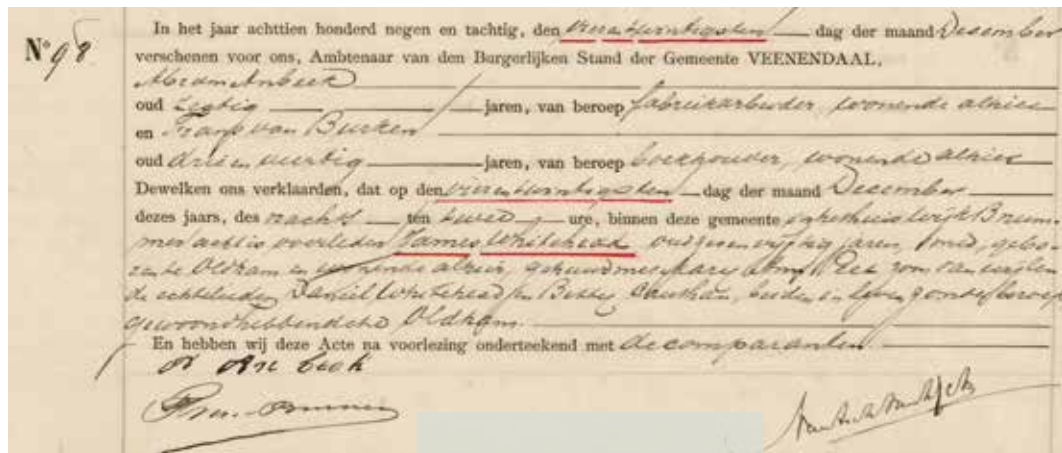 In het jaar achttien honderd negen en tachtig, den vierentwintigsten dag der maand December
No 98 verschenen voor ons, Ambtenaar van den Burgerlijken Stand der Gemeente VEENENDAAL,
Abram Anbeek
oud zestig jaren, van beroep fabriekarbeider, wonende alhier
en Frans van Burken
oud drie en veertig jaren, van beroep boekhouder, wonende alhier
Dewelken ons verklaarden, dat op den vierentwintigsten dag der maand December
dezes jaars, des nachts ten twee ure, binnen deze gemeente in het huis wijk B num
mer acht is overleden James Whitehead oud jaren, smid, gebo
ren te Oldham en wonende alhier, gehuwd met Mary Ann zoon van wijlen
de echtelieden Daniel Whitehead en Betty beiden in leven zonder beroep
gewoond hebbende te Oldham.
En hebben wij deze Acte na voorlezing onderteekend met de comparanten
A Anbeek